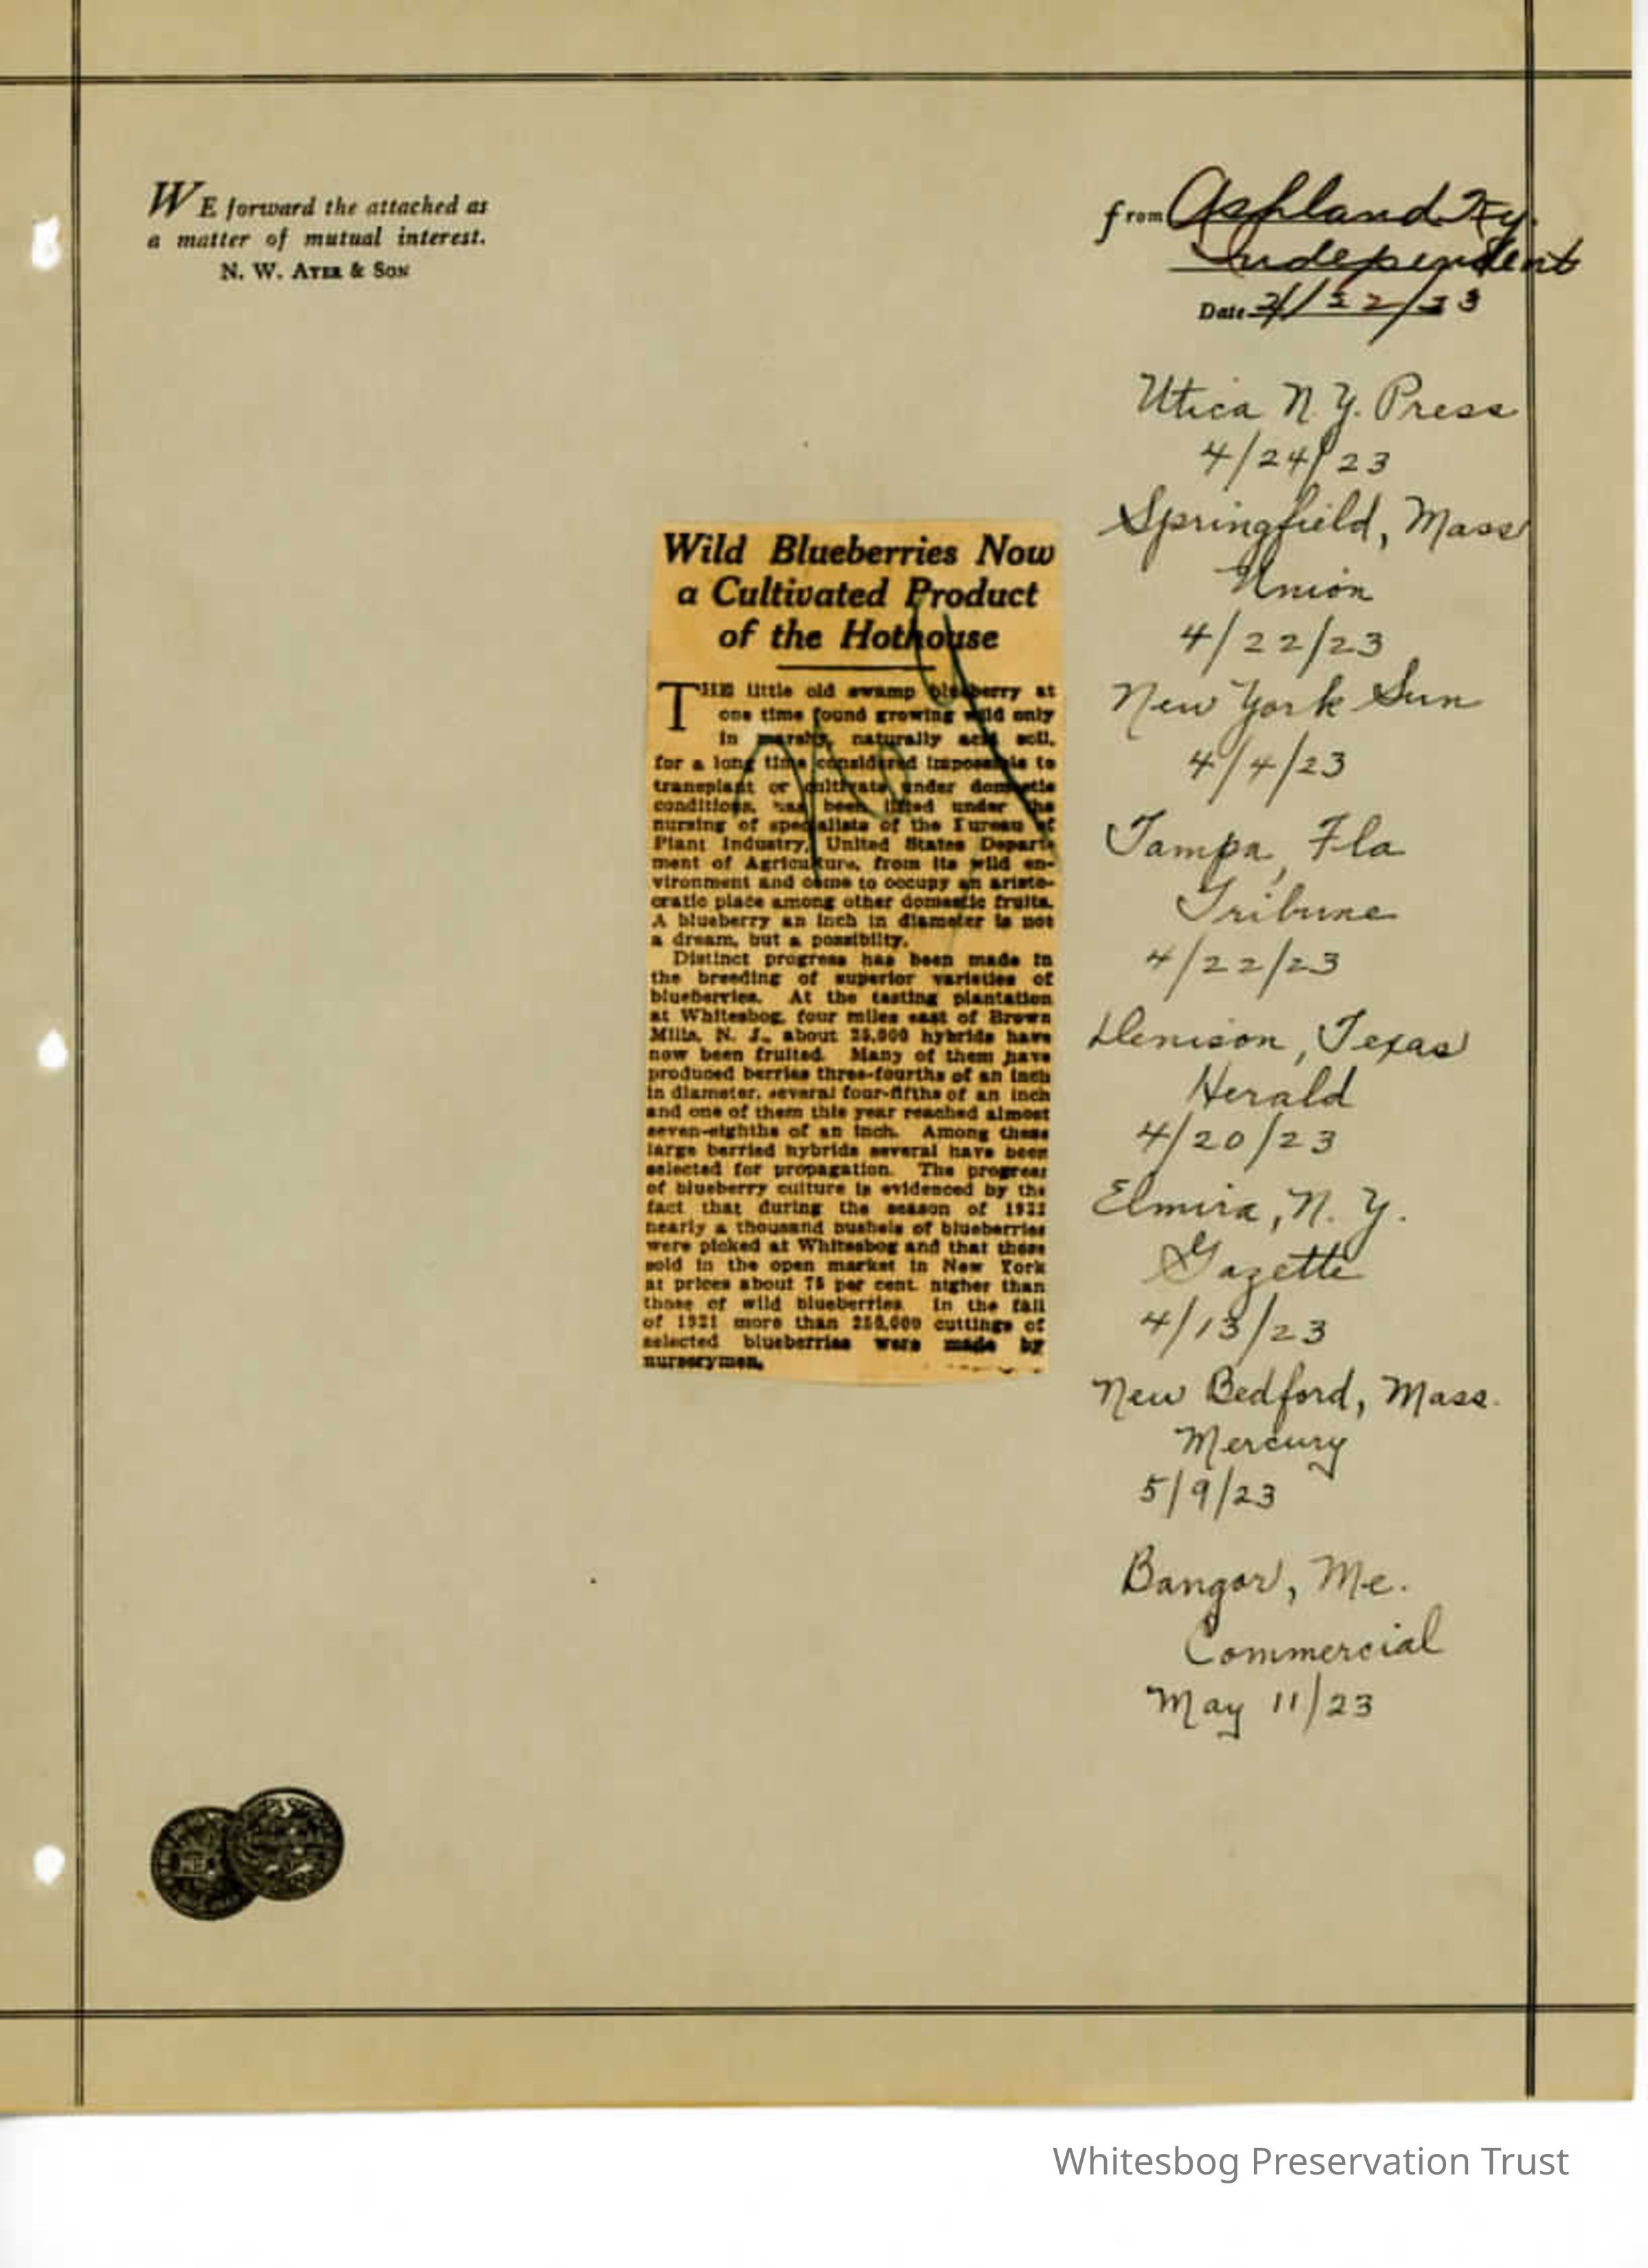 WE forward the attached as
a matter of mutual interest.
N. W. AYER & SON
from Ashland Ky.
Independent
Date
Utica N. Y. Press
4/24/23
Springfield, Mass
Union
4/22/23
New York Sun
4/4/23
Tampa, Fla
Tribune
4/22/23
Denison, Texas
Herald
4/20/23
Elmira, N. Y.
Gazette
4/13/23
New Bedford, Mass.
Mercury
5/9/23
Bangor, Me.
Commercial
May 11/23
Wild Blueberries Now
a Cultivated Product
of the Hothouse
THE little old swamp blueberry at
one time found growing wild only
in marshy, naturally acid soil,
for a long time considered impossible to
transplant or cultivate under domestic
conditions, has been lifted under the
nursing of specialists of the Bureau of
Plant Industry, United States Depart-
ment of Agriculture, from its wild en-
vironment and come to occupy an aristo-
cratic place among other domestic fruits.
A blueberry an inch in diameter is not
a dream, but a possibilty.
Distinct progress has been made in
the breeding of superior varieties of
blueberries. At the tasting plantation
at Whitesbog, four miles east of Brown
Mills, N. J., about 25,000 hybrids have
now been fruited. Many of them have
produced berries three-fourths of an inch
in diameter, several four-fifths of an inch
and one of them this year reached almost
seven-eighths of an inch. Among these
large berried hybrids several have been
selected for propagation. The progress
of blueberry culture is evidenced by the
fact that during the season of 1922
nearly a thousand bushels of blueberries
were picked at Whitesbog and that these
sold in the open market in New York
at prices about 75 per cent. higher than
those of wild blueberries. In the fall
of 1921 more than 250,000 cuttings of
selected blueberries were made by
nurserymen.
Whitesbog Preservation Trust